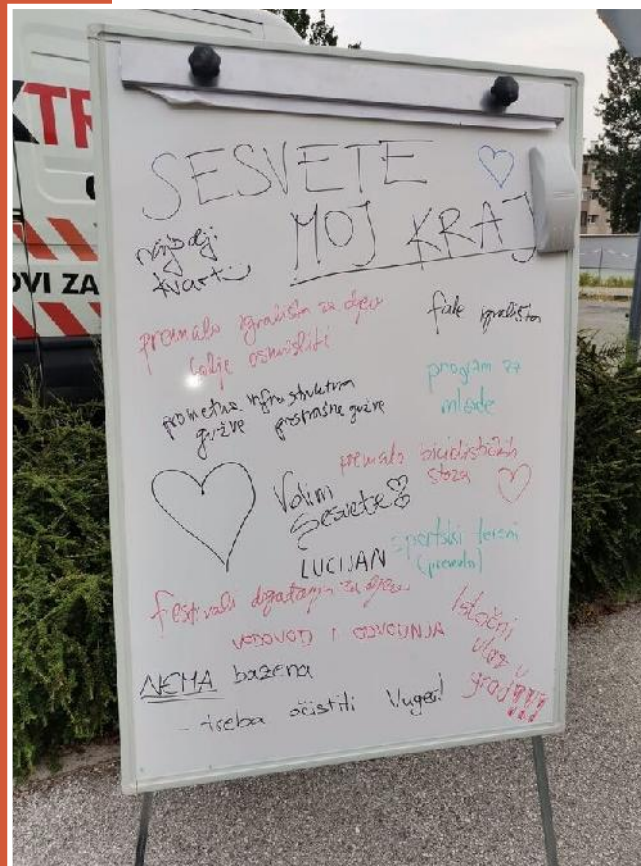 SESVETE
MOJ KRAJ
najbolji
kvart
premalo igrališta za djecu
bolje osmisliti
fale igrališta
prometna infrastruktura
gužve prestrašne gužve
program za
mlade
premalo biciklističkih
staza
Volim
Sesvete
LUCIJAN
sportski tereni
(premalo)
festivali događanja za djecu
VODOVOD I ODVODNJA
Istočni
ulaz u
grad!!!!
NEMA bazena
- treba očistiti Vuger!
XTR
OVI ZA